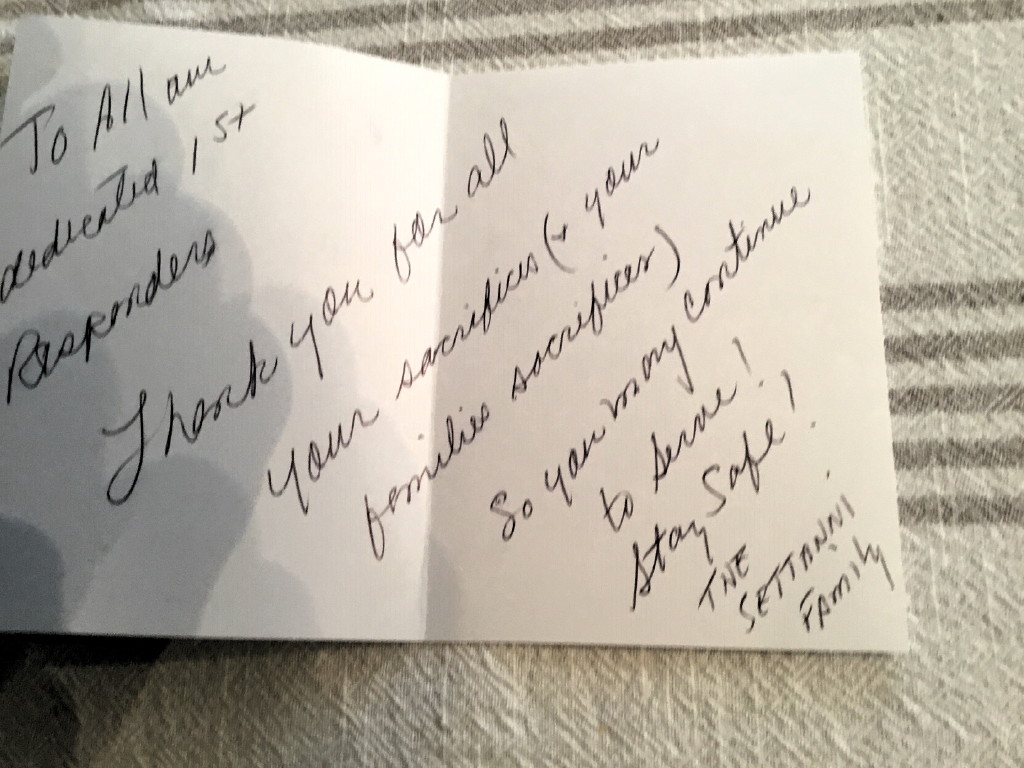 To All our
dedicated 1st
Responders
Thank you for all
your sacrifices (+ your
families sacrifices)
So you may continue
to serve!
Stay Safe!
THE
SETTANNI
FAMily